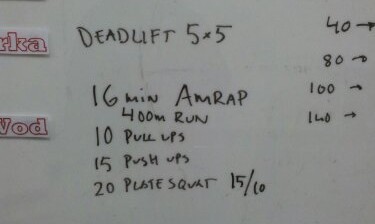 rka
DEADLIFT 5x5
40 →
80 →
100 →
140 →
16 min AMRAP
400m RUN
Wod
10 PULL UPS
15 PUSH UPS
20 PLATE SQUAT 15/10